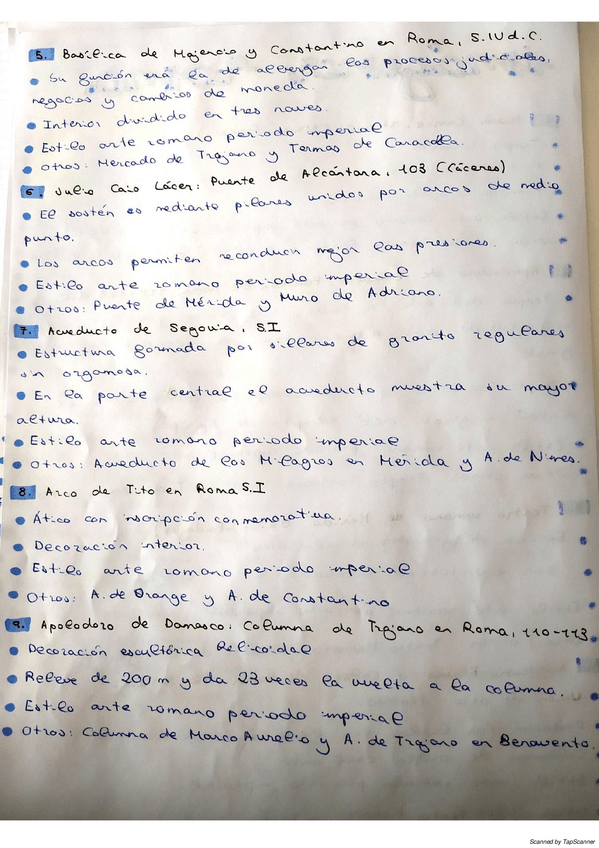 5. Basílica de Majencio y Constantino en Roma, S.IV d.C.
• Su función era la de albergar los procesos judiciales,
negocios y cambios de moneda.
• Interior dividido en tres naves.
• Estilo arte romano periodo imperial
• Otros: Mercado de Trajano y Termas de Caracalla.
6. Julio Caio Lácer: Puente de Alcántara, 103 (Cáceres)
• El sostén es mediante pilares unidos por arcos de medio
punto.
• Los arcos permiten reconducir mejor las presiones.
• Estilo arte romano periodo imperial
• Otros: Puente de Mérida y Muro de Adriano.
7. Acueducto de Segovia, S.I
• Estructura formada por sillares de granito regulares
sin orgamasa.
• En la parte central el acueducto muestra su mayor
altura.
• Estilo arte romano periodo imperial
• Otros: Acueducto de los Milagros en Mérida y A. de Nimes.
8. Arco de Tito en Roma S.I
• Ático con inscripción conmemorativa.
• Decoración interior.
• Estilo arte romano periodo imperial
• Otros: A. de Orange y A. de Constantino
9. Apolodoro de Damasco: Columna de Trajano en Roma, 110-113
• Decoración escultórica helicoidal
• Relieve de 200 m y da 23 veces la vuelta a la columna.
• Estilo arte romano periodo imperial
• Otros: Columna de Marco Aurelio y A. de Trajano en Benavento.
Scanned by TapScanner